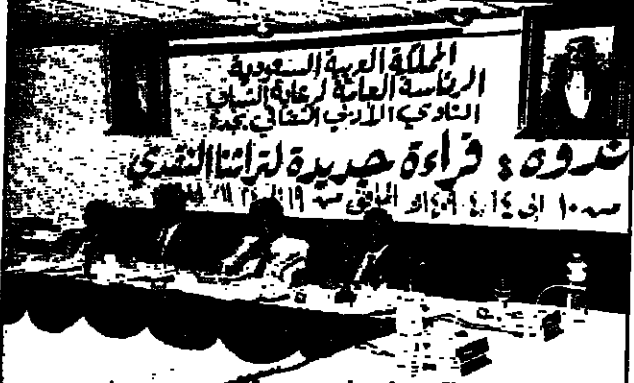 المملكة العربية السعودية
الرئاسة العامة لرعاية الشباب
النادي الأدبي الثقافي بجدة
ندوة : قراءة جديدة لتراثنا النقدي
من ١٠ الى ١٤ ٤ ١٤٠٩هـ الموافق من ١٩